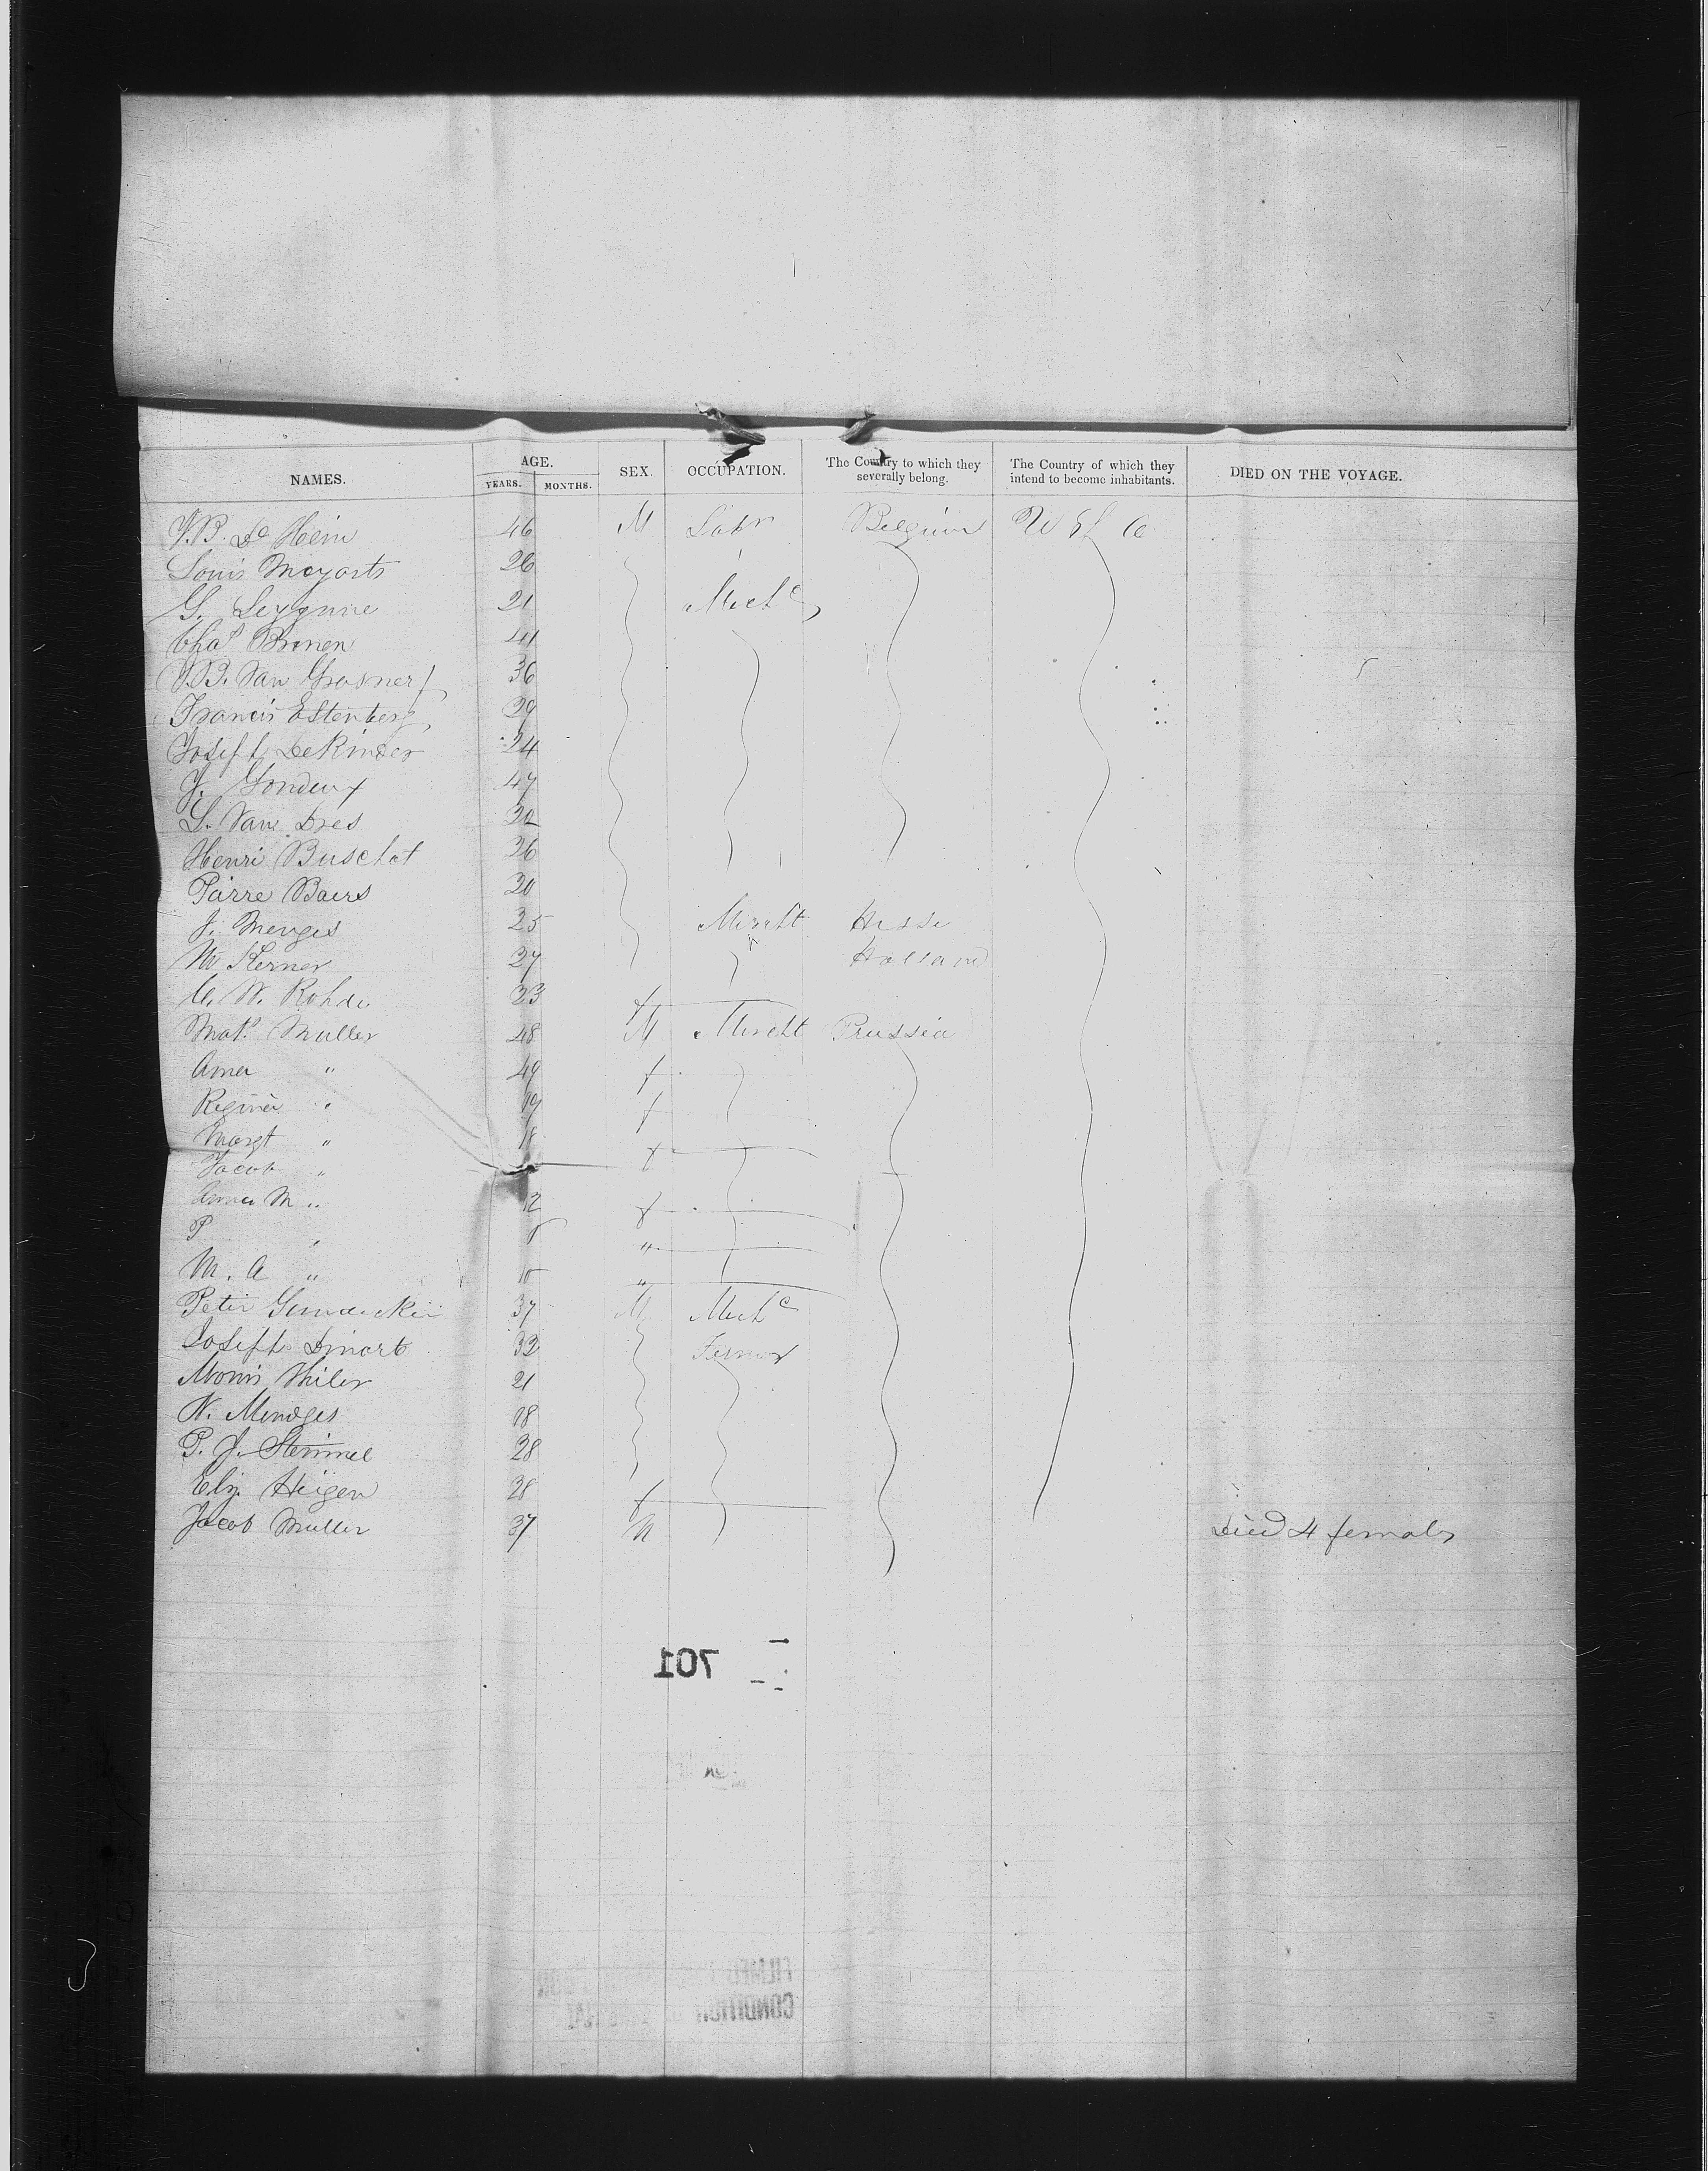 NAMES. AGE. YEARS. MONTHS. SEX. OCCUPATION. The Country to which they severally belong. The Country of which they intend to become inhabitants. DIED ON THE VOYAGE.
J.B. De Hem 46 M Labr Belgium U St A
Louis Meyarts 26
G. 21 Mechc
Chas Bronen 41
J.B. Van 36
Francis Estenberg 29
Joseph DeKinder 24
J. Gondeux 47
L. Van Dres 32
Henri Buschot 26
Pierre Baers 20
J. Menges 25 Mercht Hesse
M Kerner 27 Holland
C. W. Rohde 23 f
Mat. Muller 48 M Mercht Prussia
Anna " 49 f
Regina " 19 f
Margt " 18
Jacob " f
Anna M " 12 f
P " 8 "
M. A " "
Peter 37 M Mechc
Joseph Dinart 33 Farmer
Morris Thiler 21
N. Mendges 18
P. J. Stemmel 28
Eliz. Heigen 28 f
Jacob Muller 37 M Died 4 females
701
FILMED
CONDITION